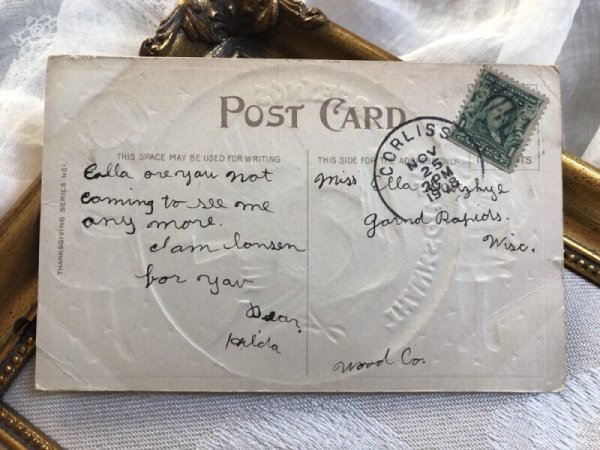 POST CARD
THIS SPACE MAY BE USED FOR WRITING
THIS SIDE FOR ADDRESS ONLY
THANKSGIVING SERIES NO1.
Ealla are you not
coming to see me
any more.
I am lonsen
for yau
Dear,
Hilda
Miss Ella
Garnd Rapids.
Wisc.
Wood Co.
CORLISS
NOV
25
PM